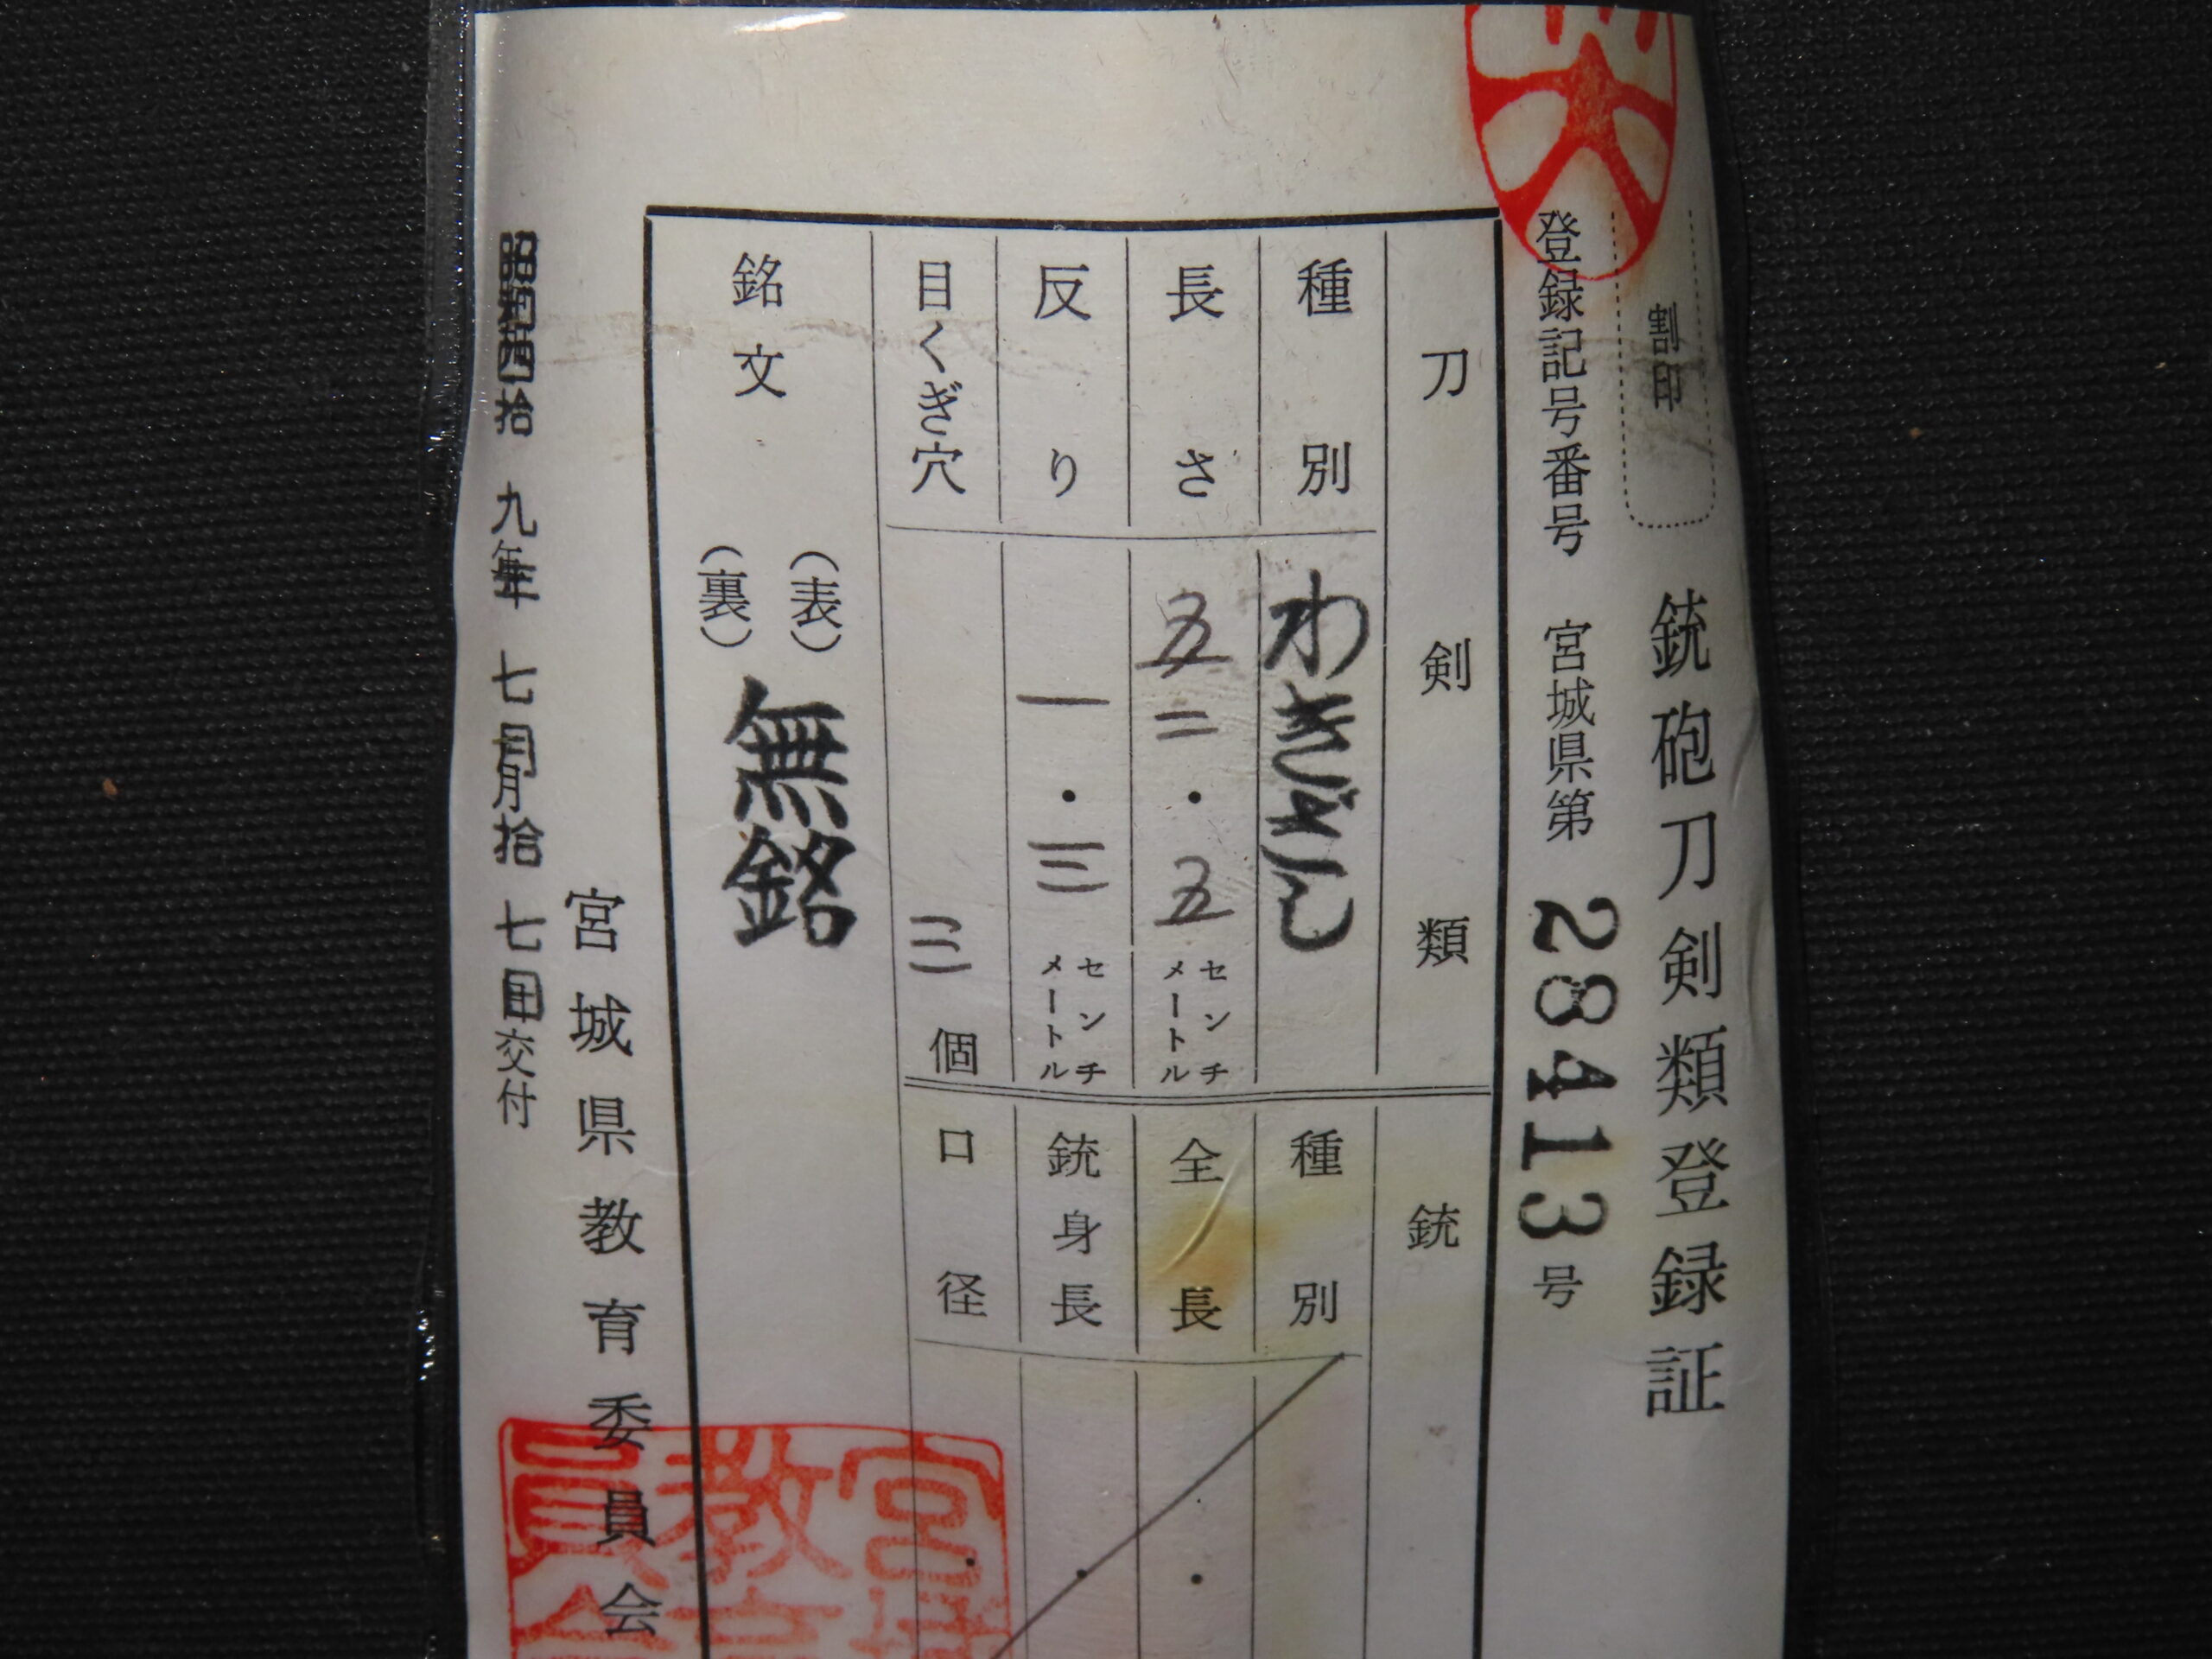 銃砲刀剣類登録証
割印
登録記号番号 宮城県第 28413 号
刀剣類
種別 わきざし
長さ 五二・五 センチメートル
反り 一・三 センチメートル
目くぎ穴 三 個
銘文 (表) (裏) 無銘
銃
種別
全長 ・
銃身長 ・
口径 ・
宮城県教育委員会
昭和四拾九年七月拾七日交付